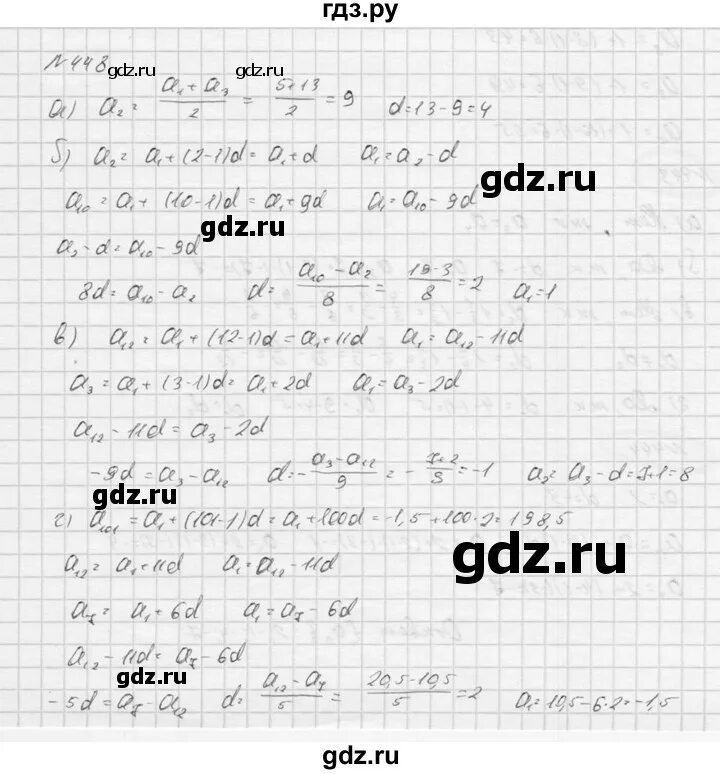 гдз.ру
N 448
gdz.ru gdz.ru
а) a₂ = (a₁ + a₃)/2 = (5+13)/2 = 9 d = 13 - 9 = 4
б) a₂ = a₁ + (2-1)d = a₁ + d a₁ = a₂ - d
gdz.ru gdz.ru
a₁₀ = a₁ + (10-1)d = a₁ + 9d a₁ = a₁₀ - 9d
a₂ - d = a₁₀ - 9d
8d = a₁₀ - a₂ d = (a₁₀ - a₂)/8 = (19-3)/8 = 2 a₁ = 1
gdz.ru
в) a₁₂ = a₁ + (12-1)d = a₁ + 11d a₁ = a₁₂ - 11d
a₃ = a₁ + (3-1)d = a₁ + 2d a₁ = a₃ - 2d
a₁₂ - 11d = a₃ - 2d
-9d = a₃ - a₁₂ d = -(a₃ - a₁₂)/9 = - (7+2)/9 = -1 a₂ = a₃ - d = 7+1 = 8
gdz.ru
г) a₁₀₁ = a₁ + (101-1)d = a₁ + 100d = -1,5 + 100·2 = 198,5
gdz.ru
a₁₂ = a₁ + 11d a₁ = a₁₂ - 11d
a₇ = a₁ + 6d a₁ = a₇ - 6d
a₁₂ - 11d = a₇ - 6d
gdz.ru
-5d = a₇ - a₁₂ d = (a₁₂ - a₇)/5 = (20,5-10,5)/5 = 2 a₁ = 10,5 - 6·2 = -1,5
gdz.ru